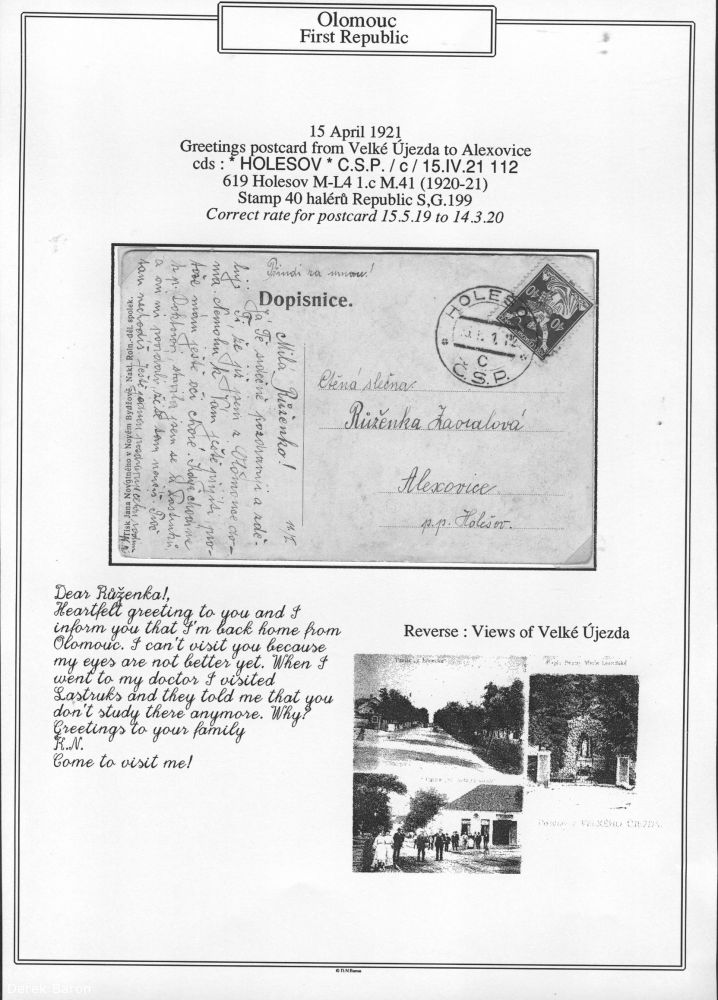 Olomouc
First Republic
15 April 1921
Greetings postcard from Velké Újezda to Alexovice
cds : * HOLESOV * C.S.P. / c / 15.IV.21 112
619 Holesov M-L4 1.c M.41 (1920-21)
Stamp 40 halérů Republic S,G.199
Correct rate for postcard 15.5.19 to 14.3.20
Přindi za mnou!
Dopisnice.
HOLEŠO
C
Č.S.P.
40
Milá Růženko!
Já Tě srdečně pozdravuji a sdě-
luji Ti, že již jsem z Olomouce do-
ma. Nemohu k Vám ještě přijít, pro-
tože mám ještě oči choré. Když
p. Doktorovi, stavila jsem se u Lastruků
a oni mi povídali že
tam nechodíš
Ctěná slečna
Růženka Zavralová
Alexovice
p.p. Holešov.
Tisk Jana Novotného v Novém Bydžově. Nákl. Roln.-děl. spolek.
Dear Růženka!,
Heartfelt greeting to you and I
inform you that I'm back home from
Olomouc. I can't visit you because
my eyes are not better yet. When I
went to my doctor I visited
Lastruks and they told me that you
don't study there anymore. Why?
Greetings to your family
K.N.
Come to visit me!
Reverse : Views of Velké Újezda
Pozdrav z VELKÉHO ÚJEZDA.
© D.N.Baron
Derek Baron